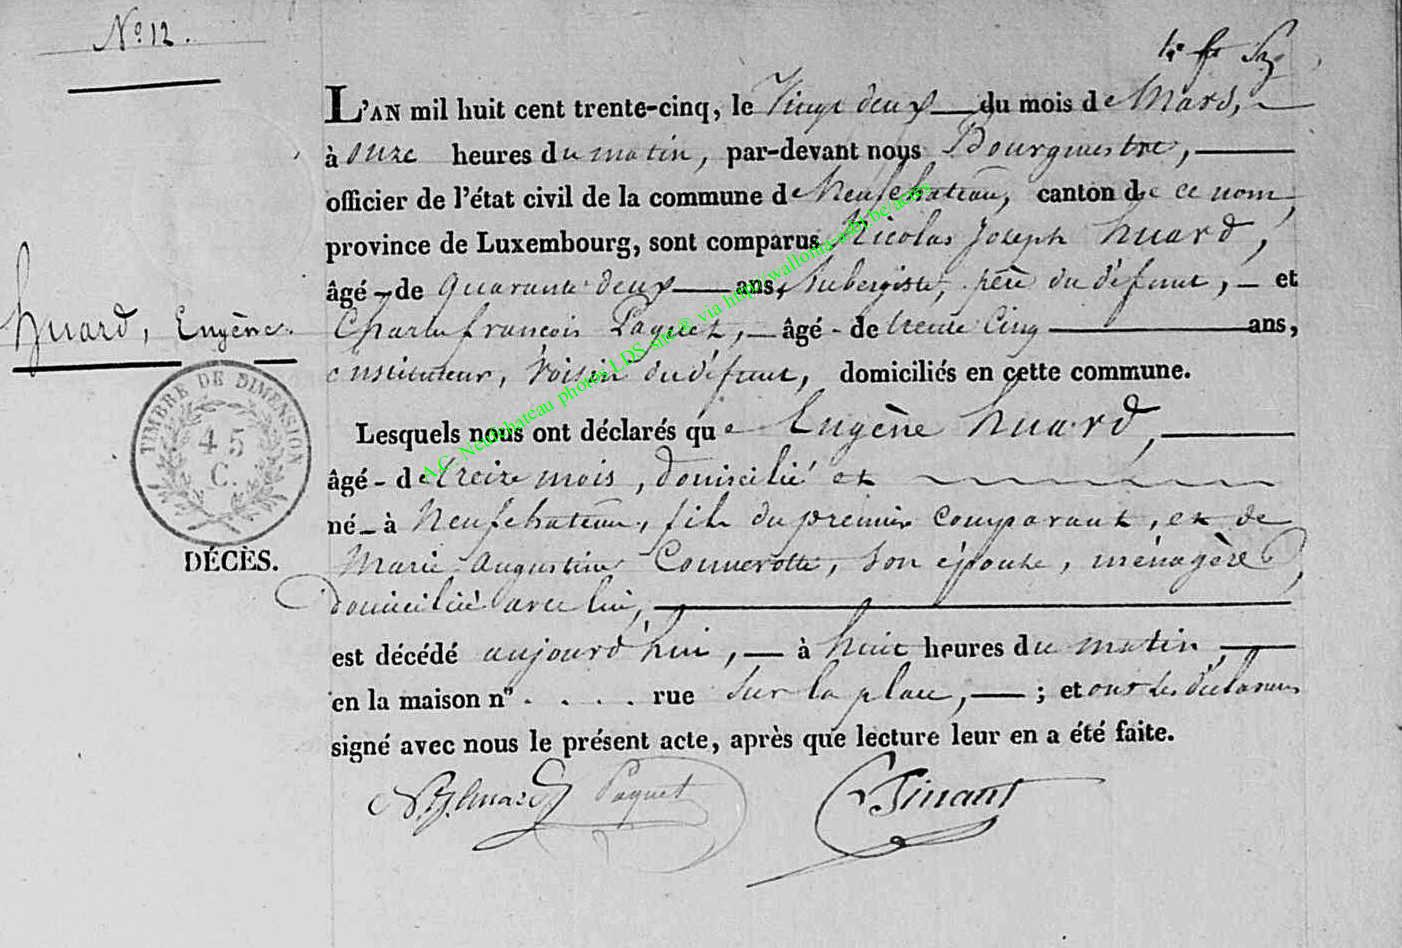 N° 12.
L'AN mil huit cent trente-cinq, le Vingt deux du mois de Mars,
à onze heures du matin, par-devant nous Bourgmestre,
officier de l'état civil de la commune de Neufchateau, canton de ce nom,
province de Luxembourg, sont comparus Nicolas Joseph Huard,
âgé - de quarante deux ans, Aubergiste, père du défunt, et
Huard, Eugène.
Charles françois Paquet, âgé - de trente Cinq ans,
instituteur, Voisin du défunt, domiciliés en cette commune.
TIMBRE DE DIMENSION
45
C.
Lesquels nous ont déclarés que Eugène Huard,
âgé - de treize mois, domicilié et
né - à Neufchateau, fils du premier comparant, et de
DÉCÈS.
Marie Augustine Connerotte, son épouse, ménagère,
domiciliée avec lui,
est décédé aujourd'hui, à huit heures du matin,
en la maison n° . . . . rue sur la place, ; et ont les déclarans
signé avec nous le présent acte, après que lecture leur en a été faite.
N. J. Huard Paquet Dinant
A.C. Neufchateau photos LDS site® via http://wallonia-asbl.be/actes